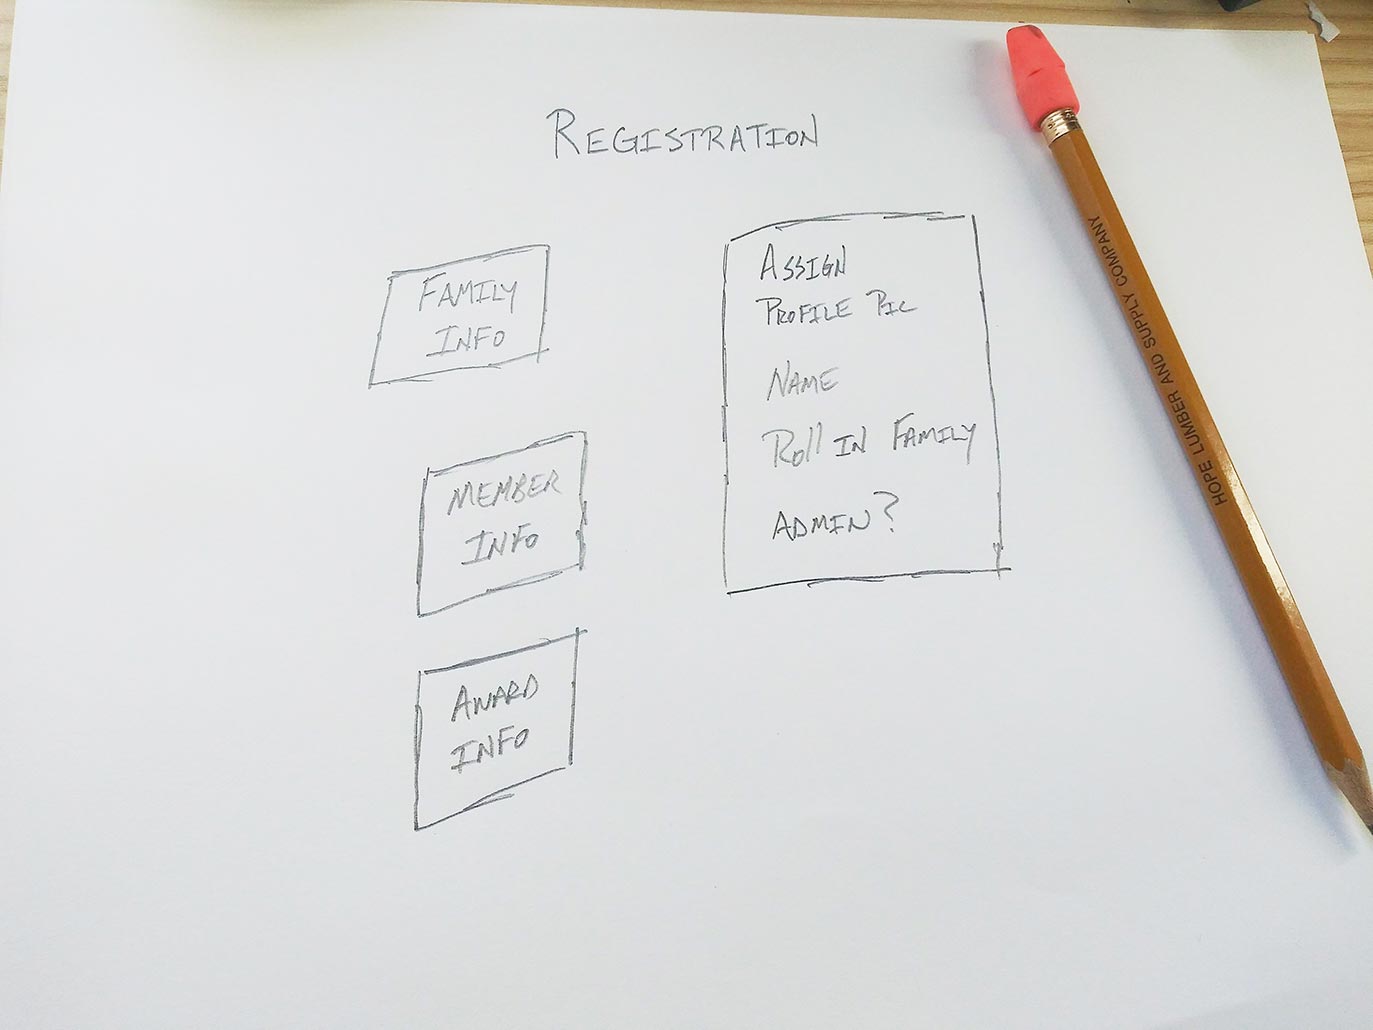 REGISTRATION
FAMILY
INFO
MEMBER
INFO
AWARD
INFO
ASSIGN
PROFILE PIC
NAME
Roll IN FAMILY
ADMIN?
HOPE LUMBER AND SUPPLY COMPANY